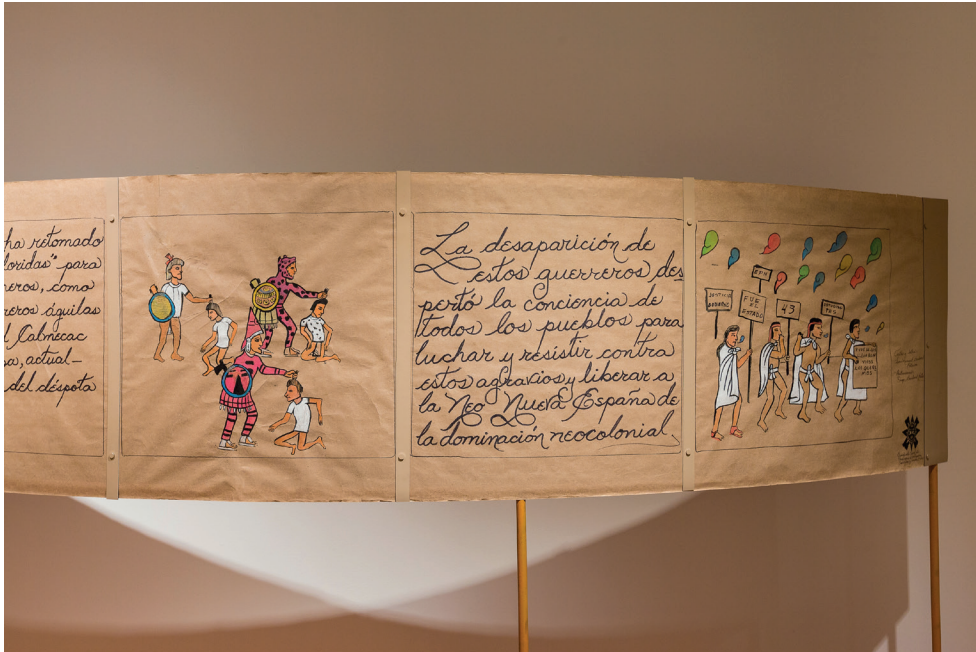 ha retomado
loridas" para
neros, como
reros águilas
l Calmecac
sa, actual-
del déspota
La desaparición de
estos guerreros des
pertó la conciencia de
todos los pueblos para
luchar y resistir contra
estos agravios, y liberar a
la Neo Nueva España de
la dominación neocolonial.
EPN
JUSTICIA
FUE
EL
ESTADO
43
VIVOS